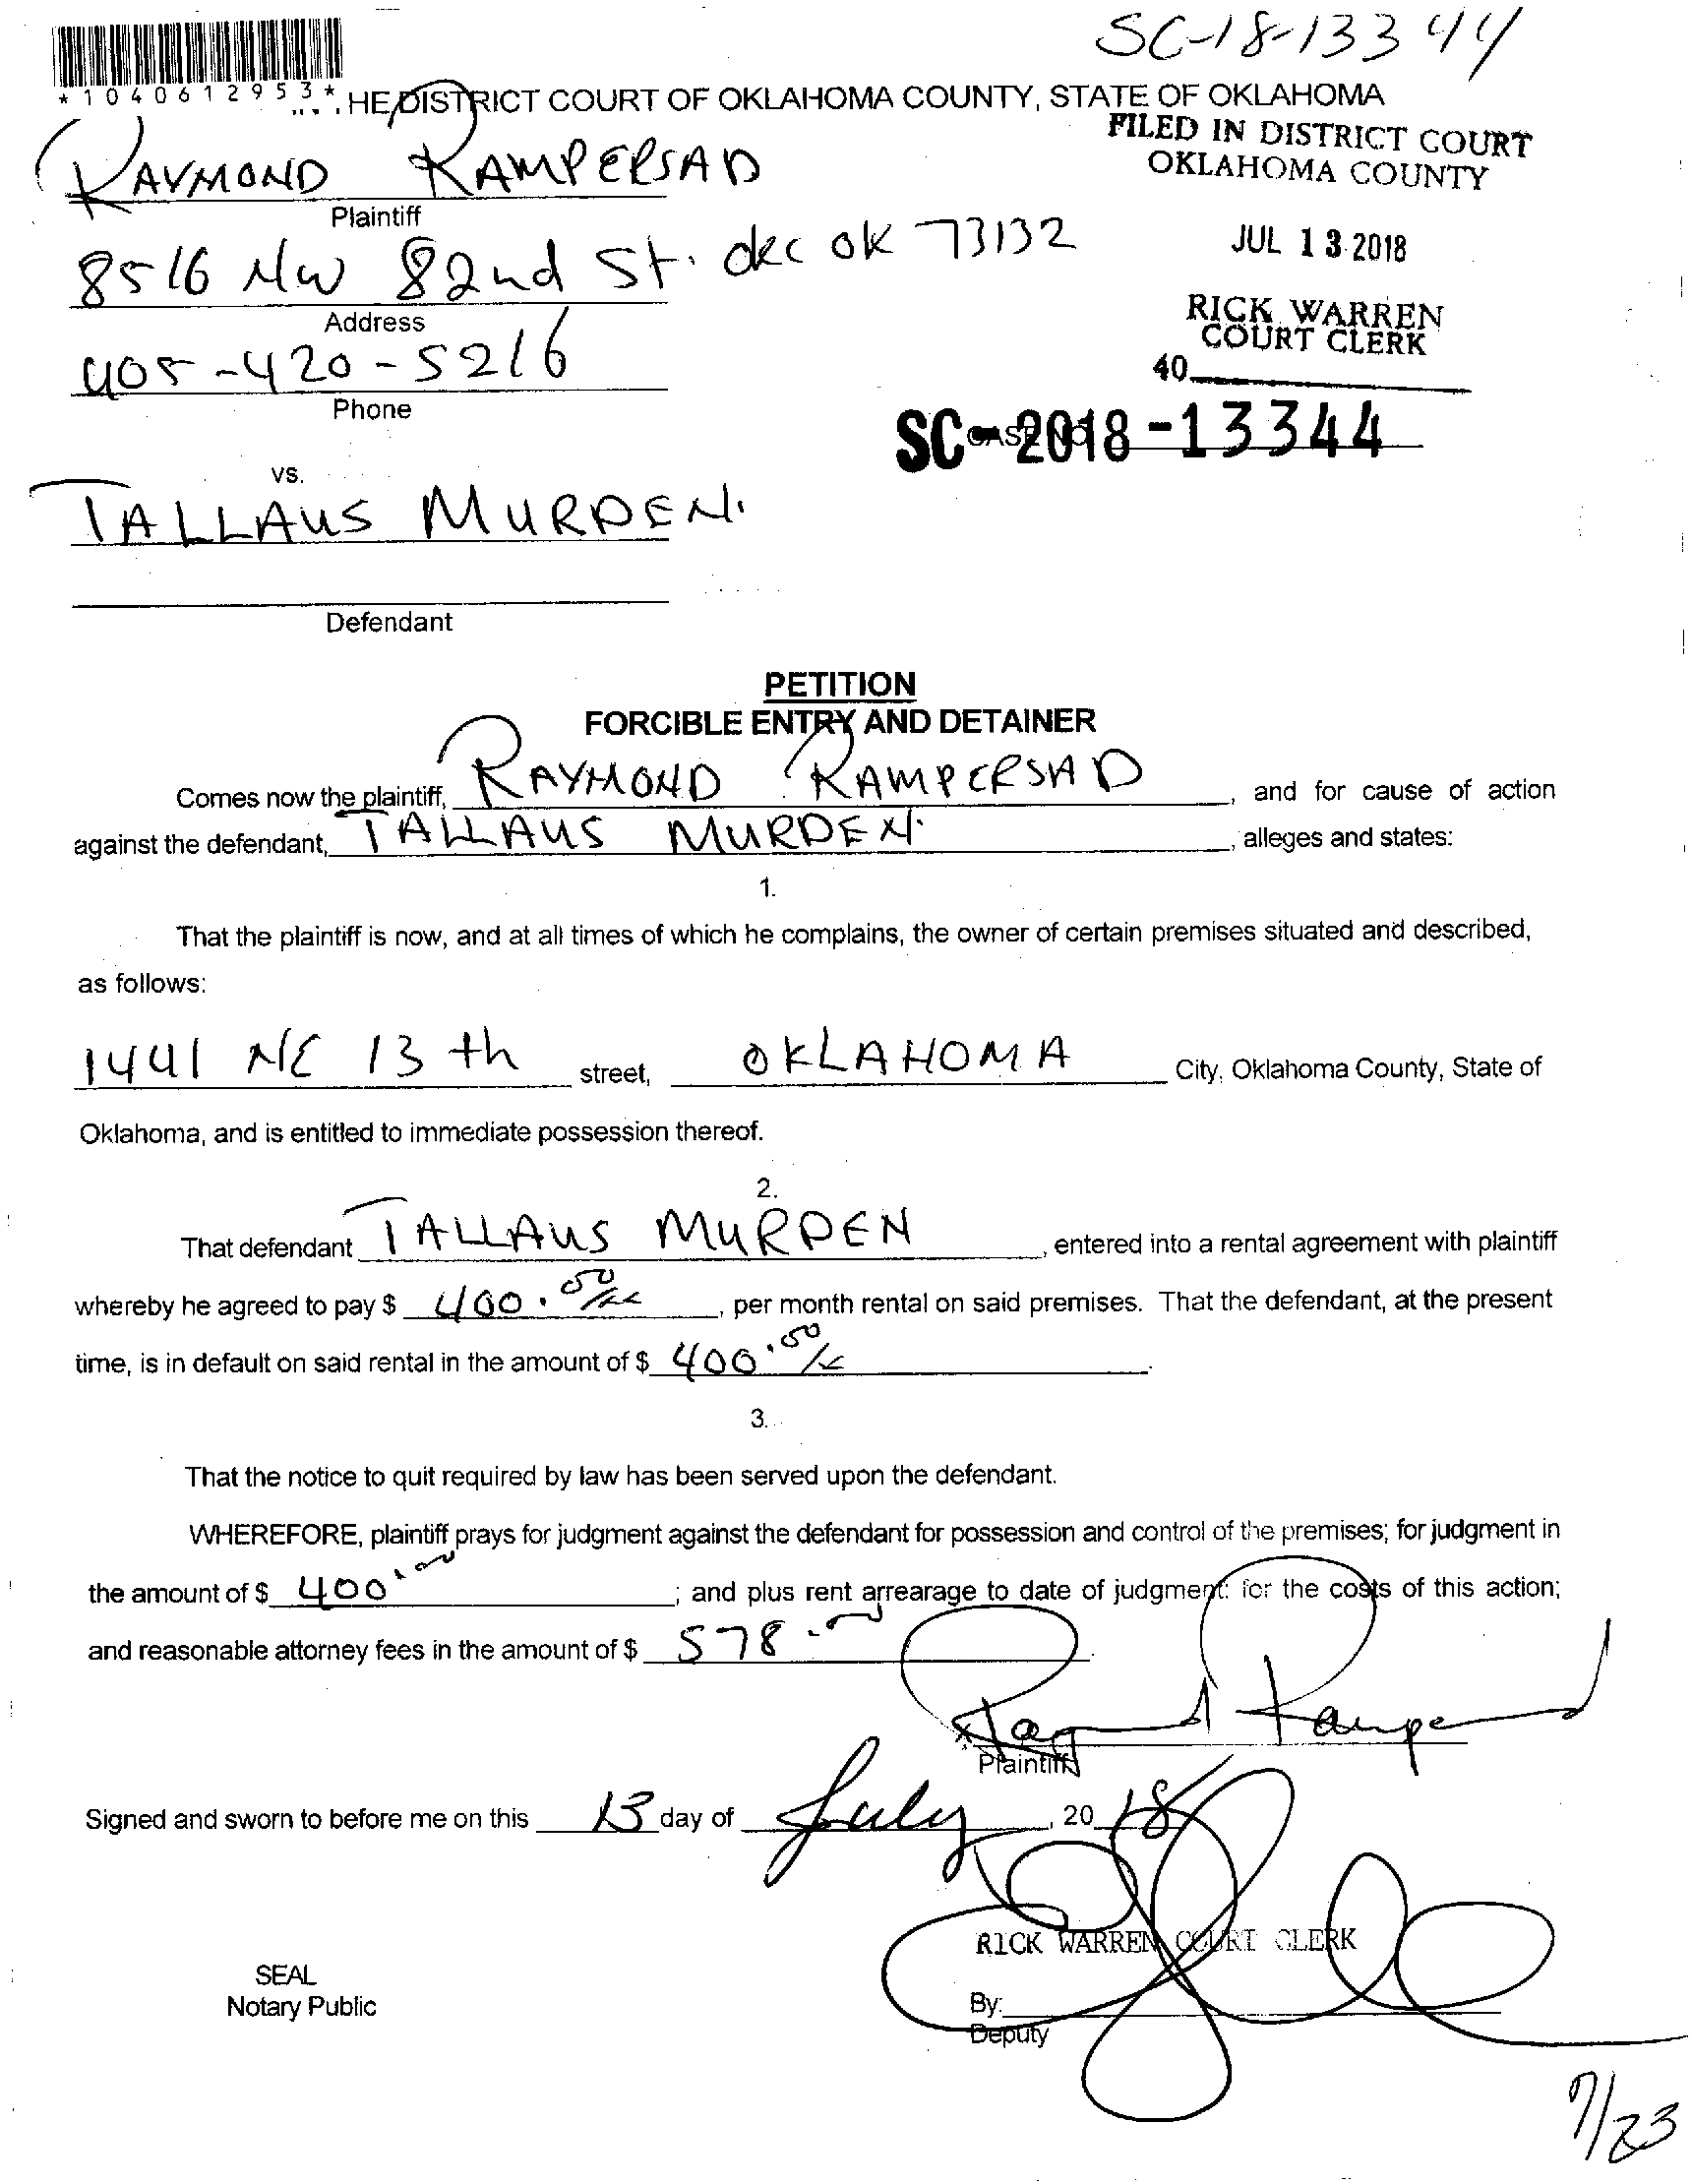 SC-18-13344
*1040612953* HE DISTRICT COURT OF OKLAHOMA COUNTY, STATE OF OKLAHOMA
FILED IN DISTRICT COURT
OKLAHOMA COUNTY
RAYMOND RAMPERSAD
Plaintiff
JUL 13 2018
8516 NW 82nd St. okc ok 73132
Address
RICK WARREN
COURT CLERK
405-420-5216
40
Phone
SC-2018-13344
CASE NO.
vs.
TALLAUS MURDEN.
Defendant
PETITION
FORCIBLE ENTRY AND DETAINER
Comes now the plaintiff, RAYMOND RAMPERSAD, and for cause of action
against the defendant, TALLAUS MURDEN., alleges and states:
1.
That the plaintiff is now, and at all times of which he complains, the owner of certain premises situated and described,
as follows:
1441 NE 13th street, OKLAHOMA City, Oklahoma County, State of
Oklahoma, and is entitled to immediate possession thereof.
2.
That defendant TALLAUS MURDEN, entered into a rental agreement with plaintiff
whereby he agreed to pay $ 400.00, per month rental on said premises. That the defendant, at the present
time, is in default on said rental in the amount of $ 400.00.
3.
That the notice to quit required by law has been served upon the defendant.
WHEREFORE, plaintiff prays for judgment against the defendant for possession and control of the premises; for judgment in
the amount of $ 400.00; and plus rent arrearage to date of judgment: for the costs of this action;
and reasonable attorney fees in the amount of $ 578.00.
x Raymond Rampersad
Plaintiff
Signed and sworn to before me on this 13 day of July, 2018
RICK WARREN COURT CLERK
SEAL
Notary Public
By:
Deputy
7/23